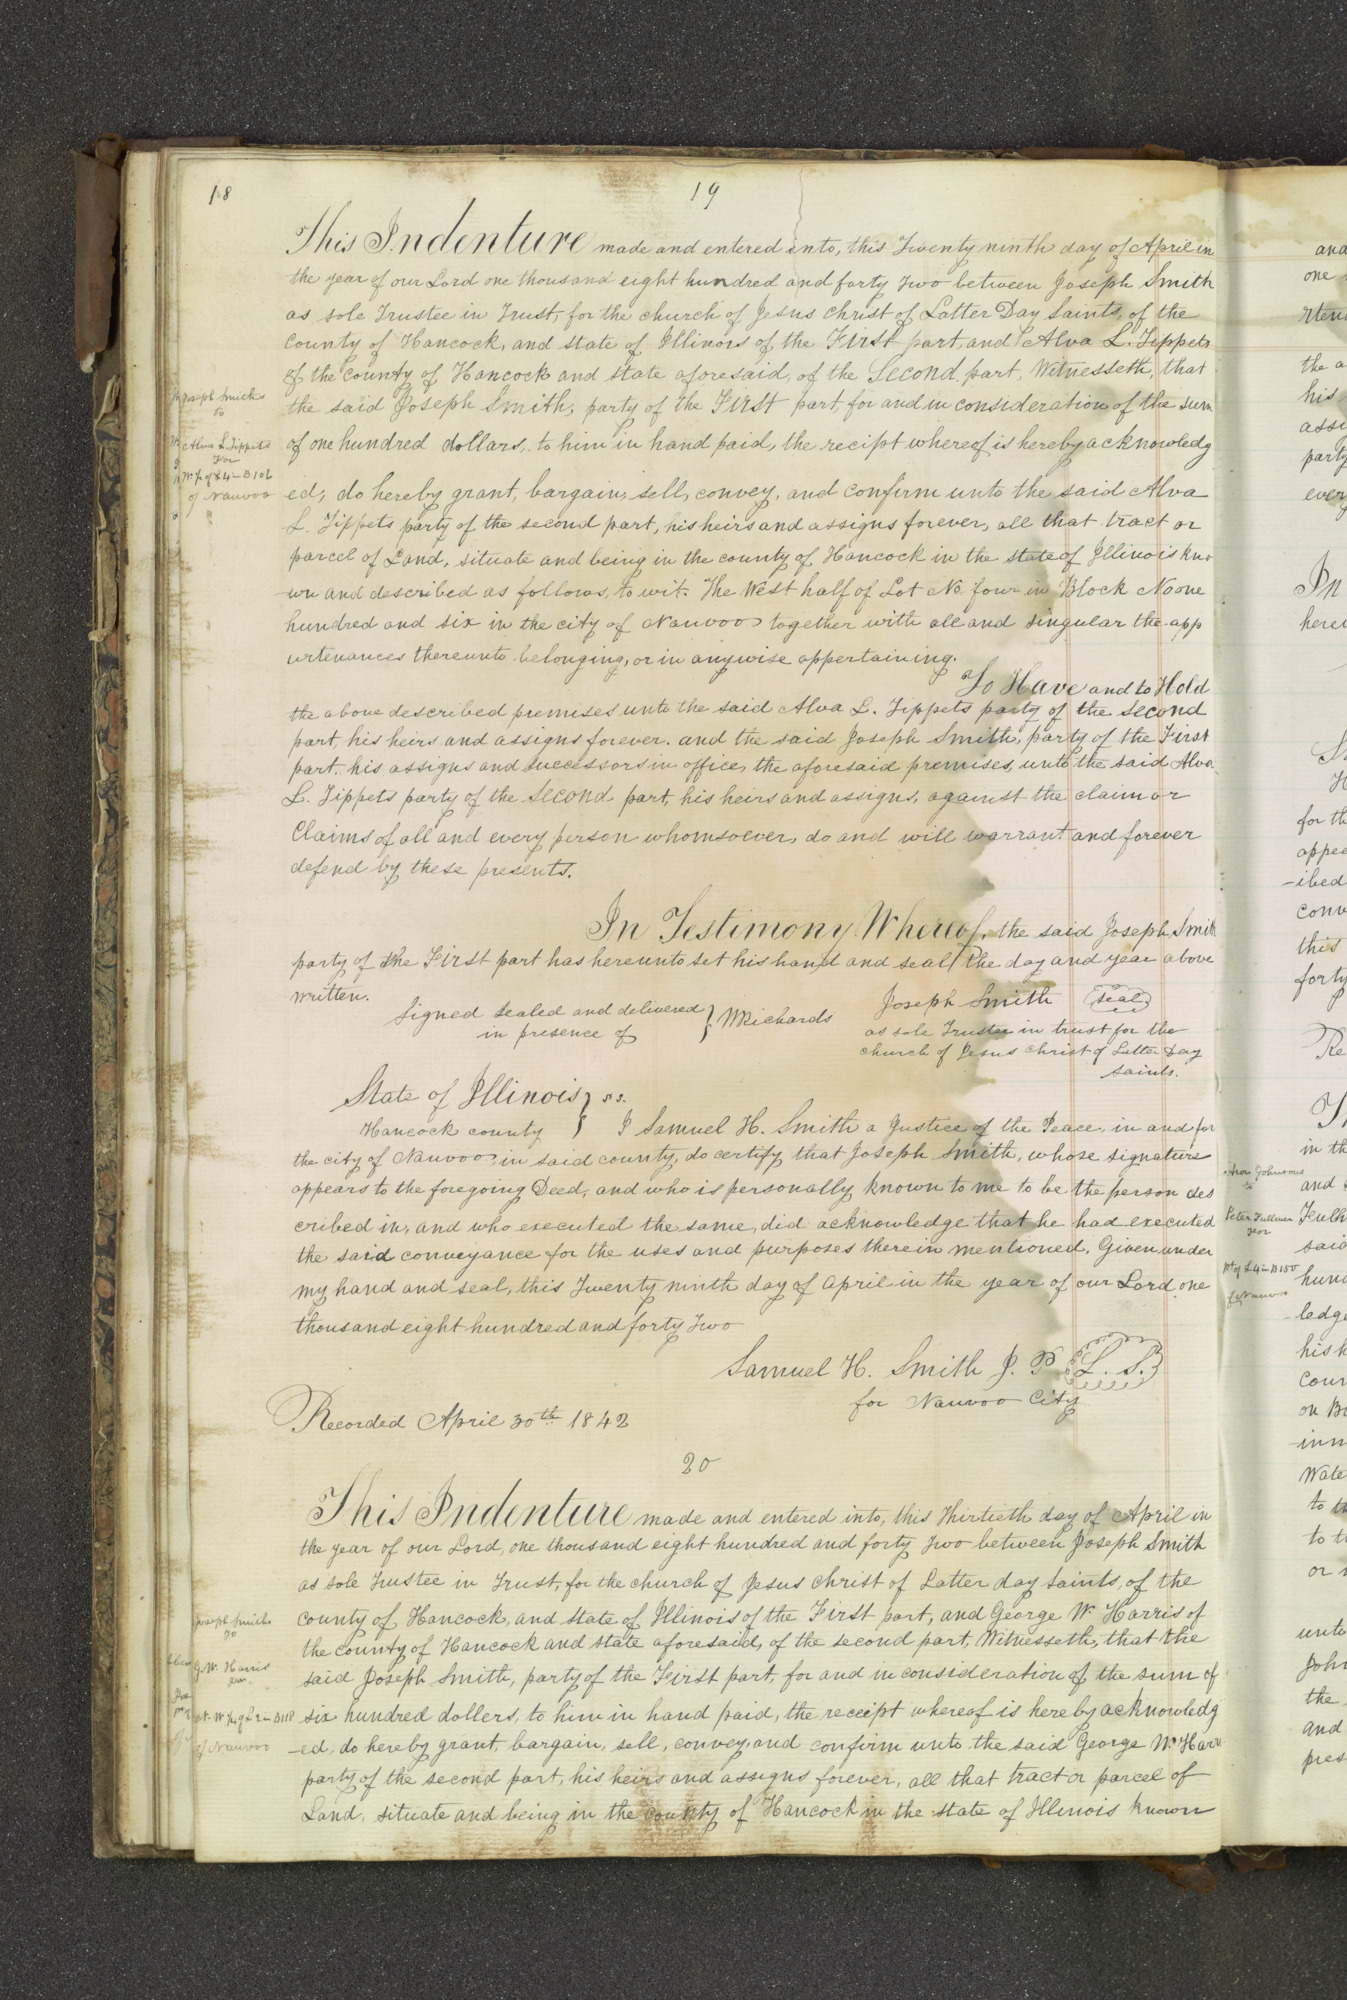 18
19
This Indenture made and entered into, this Twenty ninth day of April in
the year of our Lord one thousand eight hundred and forty Two between Joseph Smith
as sole Trustee in Trust, for the church of Jesus Christ of Latter Day Saints, of the
County of Hancock, and state of Illinois of the First part, and Alva L. Tippets
of the County of Hancock and state aforesaid, of the Second part, Witnesseth, that
the said Joseph Smith, party of the First part, for and in consideration of the sum
of one hundred dollars, to him in hand paid, the recipt whereof is hereby acknowledg
ed, do hereby grant, bargain, sell, convey, and confirm unto the said Alva
L. Tippets party of the second part, his heirs and assigns forever, all that tract or
parcel of Land, situate and being in the county of Hancock in the state of Illinois kno
-wn and described as follows, to wit. The West half of Lot No four in Block No one
hundred and six in the city of Nauvoo together with all and singular the app
urtenances thereunto belonging, or in anywise appertaining.
To Have and to Hold
the above described premises unto the said Alva L. Tippets party of the second
part, his heirs and assigns forever. and the said Joseph Smith, party of the First
part, his assigns and successors in office, the aforesaid premises, unto the said Alva
L. Tippets party of the Second part, his heirs and assigns, against the claim or
Claims of all and every person whomsoever, do and will warrant and forever
defend by these presents.
In Testimony Whereof, the said Joseph Smith
party of the First part has hereunto set his hand and seal, the day and year above
written.
Signed sealed and delivered
in presence of } WRichards
Joseph Smith seal
as sole Trustee in trust for the
church of Jesus Christ of Latter Day
Saints.
State of Illinois } s.s.
Hancock county } I Samuel H. Smith a Justice of the Peace, in and for
the city of Nauvoo, in said county, do certify that Joseph Smith, whose signature
appears to the foregoing Deed, and who is personally known to me to be the person des
cribed in, and who executed the same, did acknowledge that he had executed
the said conveyance for the uses and purposes therein mentioned. Given under
my hand and seal, this Twenty ninth day of April in the year of our Lord one
thousand eight hundred and forty Two
Samuel H. Smith J. P. L. S.
for Nauvoo City
Recorded April 30th 1842
20
This Indenture made and entered into, this Thirtieth day of April in
the year of our Lord, one thousand eight hundred and forty Two between Joseph Smith
as sole Trustee in Trust, for the church of Jesus Christ of Latter day Saints, of the
County of Hancock, and state of Illinois of the First part, and George W. Harris of
the county of Hancock and state aforesaid, of the second part, Witnesseth, that the
said Joseph Smith, party of the First part, for and in consideration of the sum of
six hundred dollers, to him in hand paid, the receipt whereof is hereby acknowledg
-ed, do hereby grant, bargain, sell, convey, and confirm unto the said George W. Harris
party of the second part, his heirs and assigns forever, all that tract or parcel of
Land, situate and being in the county of Hancock in the state of Illinois known
Joseph Smith
to
Alva L. Tippets
For
W. ½ of L 4 in B 106
of Nauvoo
Joseph Smith
To
G. W. Harris
of Nauvoo